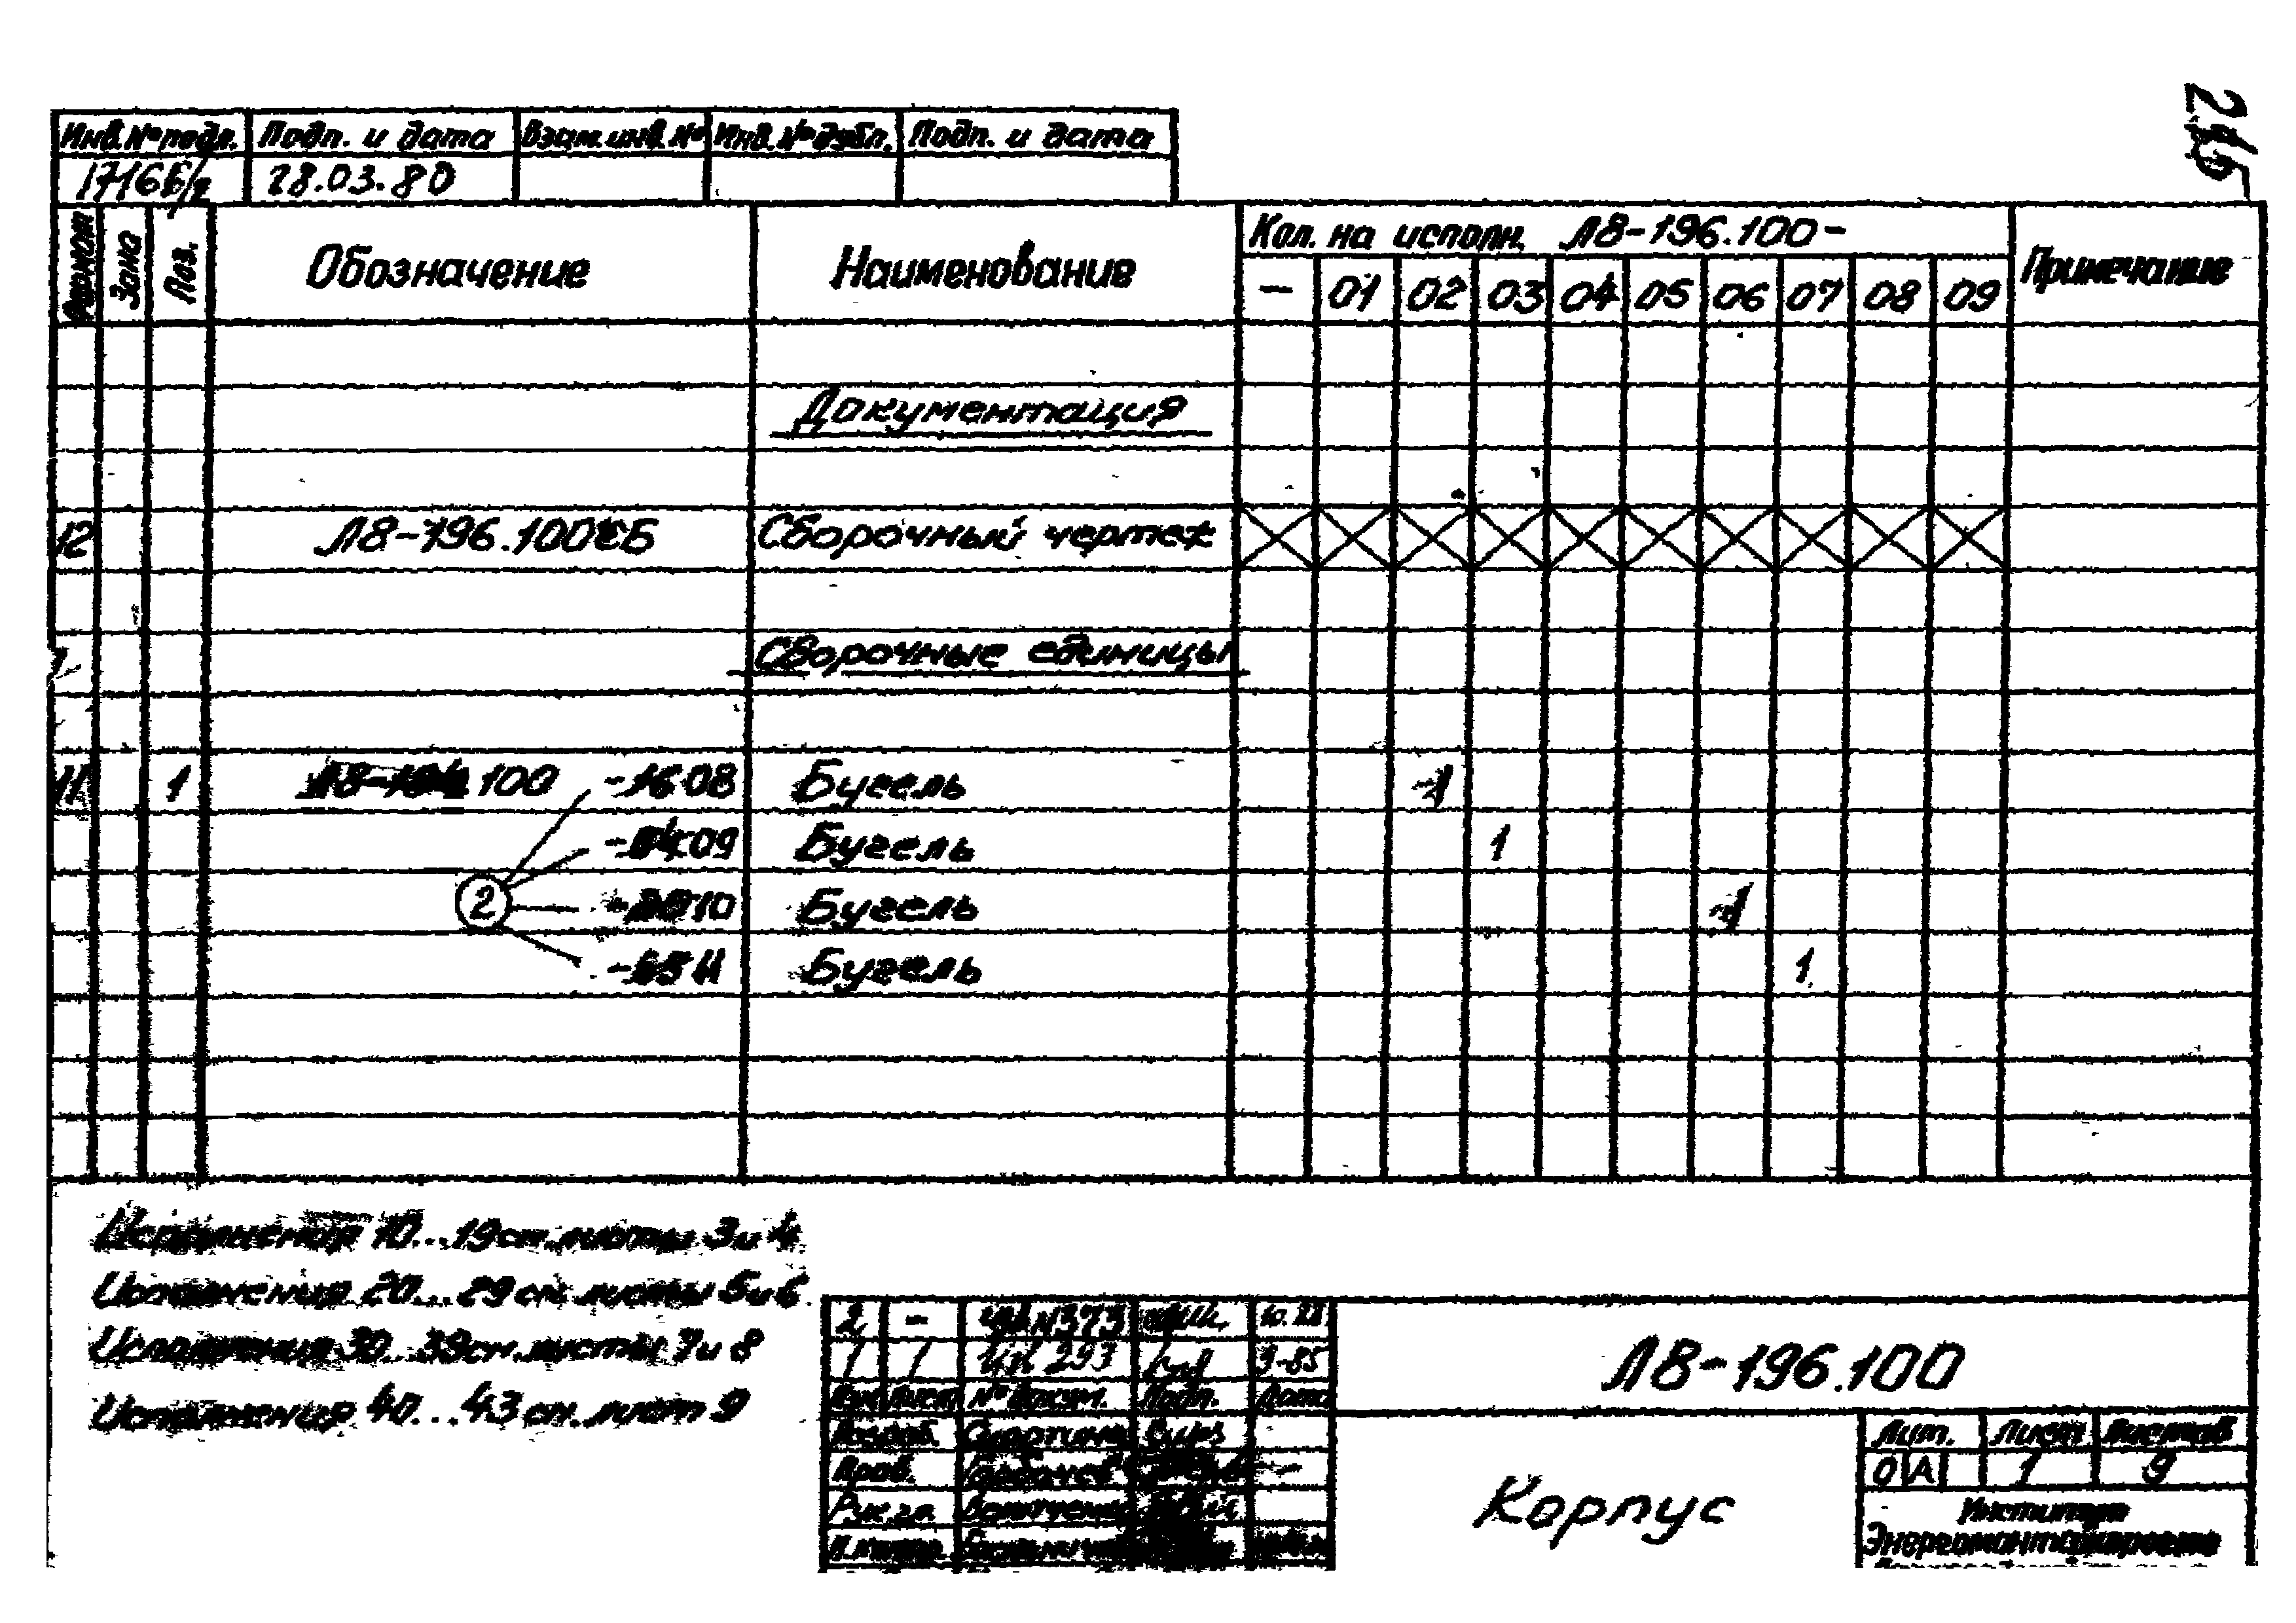 Инв.№ подл. Подп. и дата Взам.инв.№ Инв.№ дубл. Подп. и дата
28.03.80
Формат Зона Поз. Обозначение Наименование Кол. на исполн. Л8-196.100- Примечание
- 01 02 03 04 05 06 07 08 09
Документация
12 Л8-196.100СБ Сборочный чертеж
Сборочные единицы
11 1 100 -08 Бугель 1
-09 Бугель 1
2 -10 Бугель 1
-11 Бугель 1
Исполнения 10...19 см. листы 3 и 4
Исполнения 20...29 см. листы 5 и 6
Исполнения 30...39 см. листы 7 и 8
Исполнения 40...43 см. лист 9
2 - №373 10.88
293 9-85
Изм Лист № докум. Подп. Дата
Разраб.
Пров.
Рук.гр.
Н.контр.
Л8-196.100
Корпус
Лит. Лист Листов
О А 1 9
Институт
Энергомонтажпроект